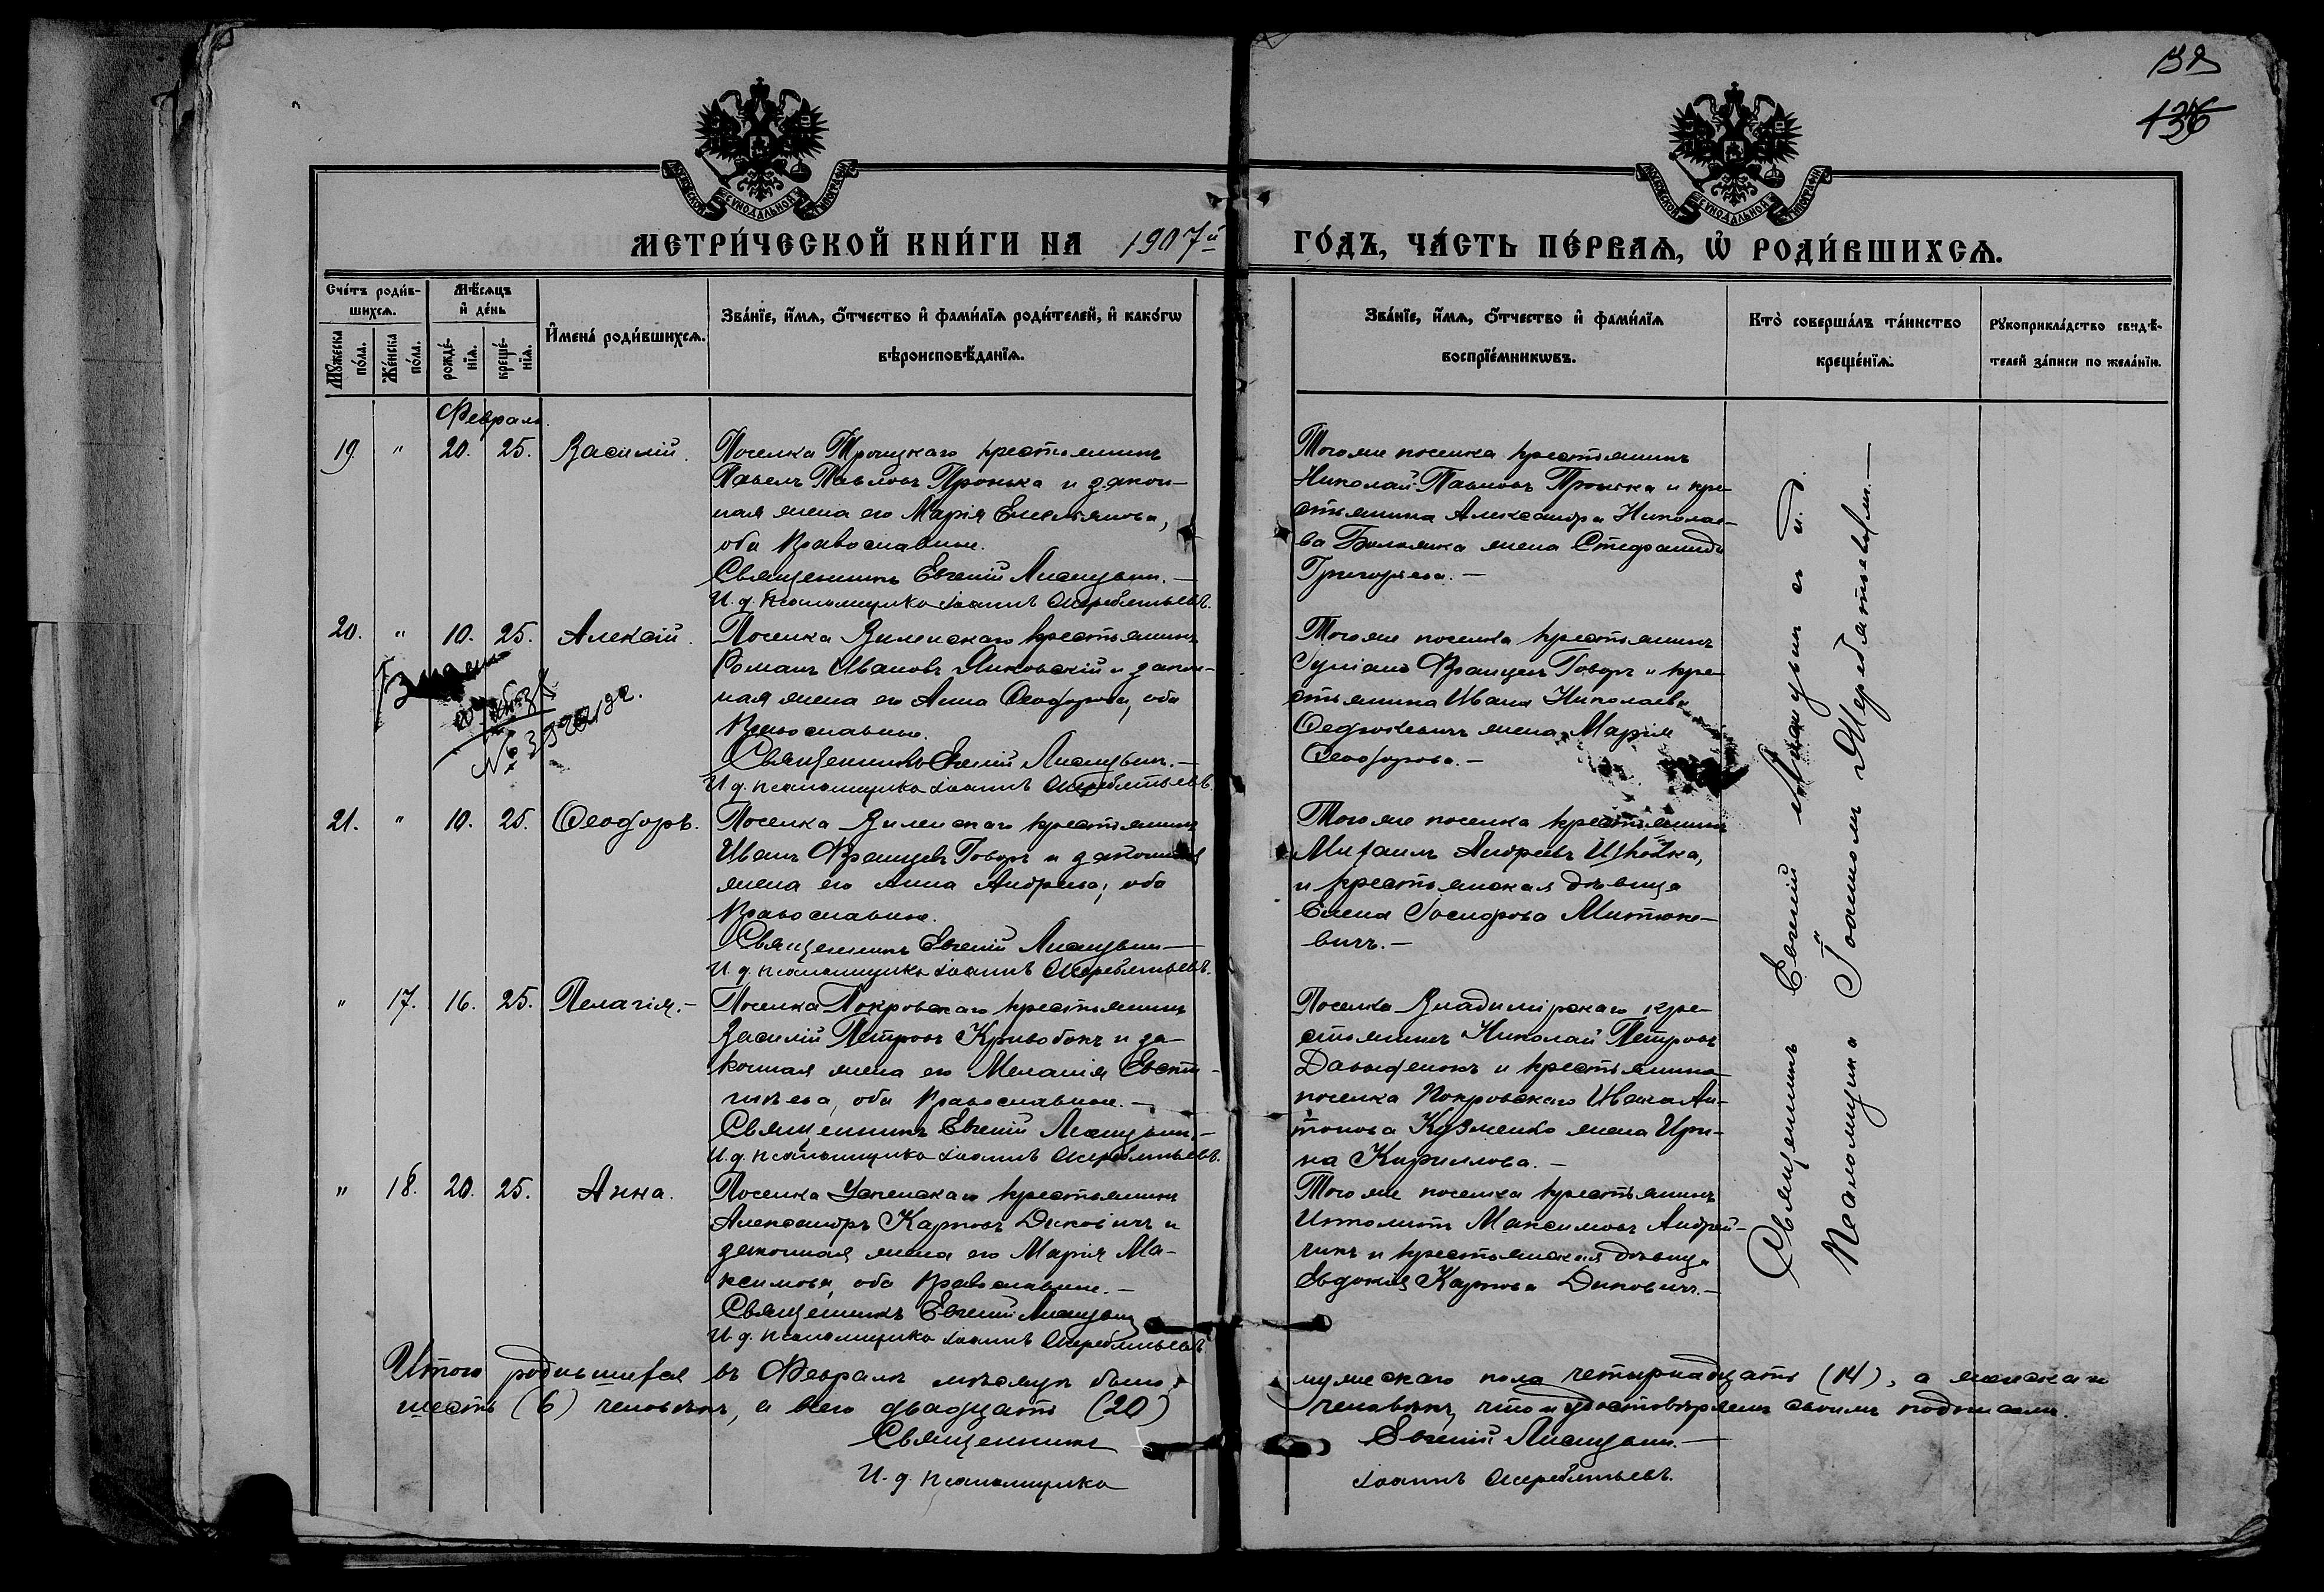 132
136
МОСКОВСКОЙ СѴНОДАЛЬНОЙ ТИПОГРАФІИ
МОСКОВСКОЙ СѴНОДАЛЬНОЙ ТИПОГРАФІИ
МЕТРИ́ЧЕСКОЙ КНИ́ГИ НА 1907й ГО́ДЪ, ЧА́СТЬ ПЕ́РВАѦ, Ѡ РОДИ́ВШИХСѦ.
Сче́тъ роди́в-
шихсѧ.
Мꙋжеска по́ла.
Же́нска по́ла.
Мѣ́сѧцъ и де́нь
рожде́-нїѧ.
креще́-нїѧ.
И҆мена̀ роди́вшихсѧ.
Зва́нїе, и҆́мѧ, ѻ҆́тчество и҆ фами́лїѧ роди́телей, и҆ како́гѡ
вѣроисповѣ́данїѧ.
Зва́нїе, и҆́мѧ, ѻ҆́тчество и҆ фами́лїѧ
воспрїе́мникѡвъ.
Кто̀ соверша́лъ та́инство
креще́нїѧ.
Рꙋкоприкла́дство свидѣ́-
телей за́писи по жела́нїю.
Февраль.
19. " 20. 25. Василій.
Поселка Троицкаго крестьянинъ
Павелъ Павловъ Пронька и закон-
ная жена его Марія Емельянова,
оба православные.
Священникъ Евгеній Лисицынъ. —
И. д. псаломщика Іоаннъ Жеребятьевъ.
Того же поселка крестьянинъ
Николай Павловъ Пронька и кре-
стьянина Александра Николае-
ва жена Стефанида
Григорьева. —
20. " 10. 25. Алексій.
Поселка Виленскаго крестьянинъ
Романъ Ивановъ Янковскій и закон-
ная жена его Анна Ѳеодорова, оба
православные.
Священникъ Евгеній Лисицынъ. —
И. д. псаломщика Іоаннъ Жеребятьевъ.
Того же поселка крестьянинъ
Францевъ Говоръ и кре-
стьянина Ивана Николаева
жена Марія
Ѳеодорова. —
21. " 10. 25. Ѳеодоръ.
Поселка Виленскаго крестьянинъ
Иванъ Францевъ Говоръ и законная
жена его Анна Андреева, оба
православные.
Священникъ Евгеній Лисицынъ —
И. д. псаломщика Іоаннъ Жеребятьевъ.
Того же поселка крестьянинъ
Михаилъ Андреевъ
и крестьянская дѣвица
Елена Митюке-
вичъ. —
" 17. 16. 25. Пелагія. —
Поселка Покровскаго крестьянинъ
Василій Петровъ Кривобокъ и за-
конная жена его Меланія Евсти-
гнѣева, оба православные. —
Священникъ Евгеній Лисицынъ. —
И. д. псаломщика Іоаннъ Жеребятьевъ.
Поселка Владимірскаго кре-
стьянинъ Николай Петровъ
Давыденокъ и крестьянина
поселка Покровскаго Ивана Ан-
тонова Кузменко жена Ири-
на Кириллова. —
" 18. 20. 25. Анна.
Поселка Успенскаго крестьянинъ
Александръ Карповъ Диковичъ и
законная жена его Марія Ма-
ксимова, оба православные. —
Священникъ Евгеній Лисицынъ
И. д. псаломщика Іоаннъ Жеребятьевъ.
Того же поселка крестьянинъ
Ипполитъ Максимовъ Андрей-
чикъ и крестьянская дѣвица
Евдокія Карпова Диковичъ. —
Священникъ Евгеній Лисицынъ съ и. д.
Псаломщика Іоанномъ Жеребятьевымъ. —
Итого родившихся въ Февралѣ мѣсяцѣ было: мужескаго пола четырнадцать (14), а женскаго
шесть (6) человѣкъ, а всего двадцать (20) человѣкъ, что и удостовѣряемъ своимъ подписомъ.
Священникъ Евгеній Лисицынъ. —
И. д. псаломщика Іоаннъ Жеребятьевъ.